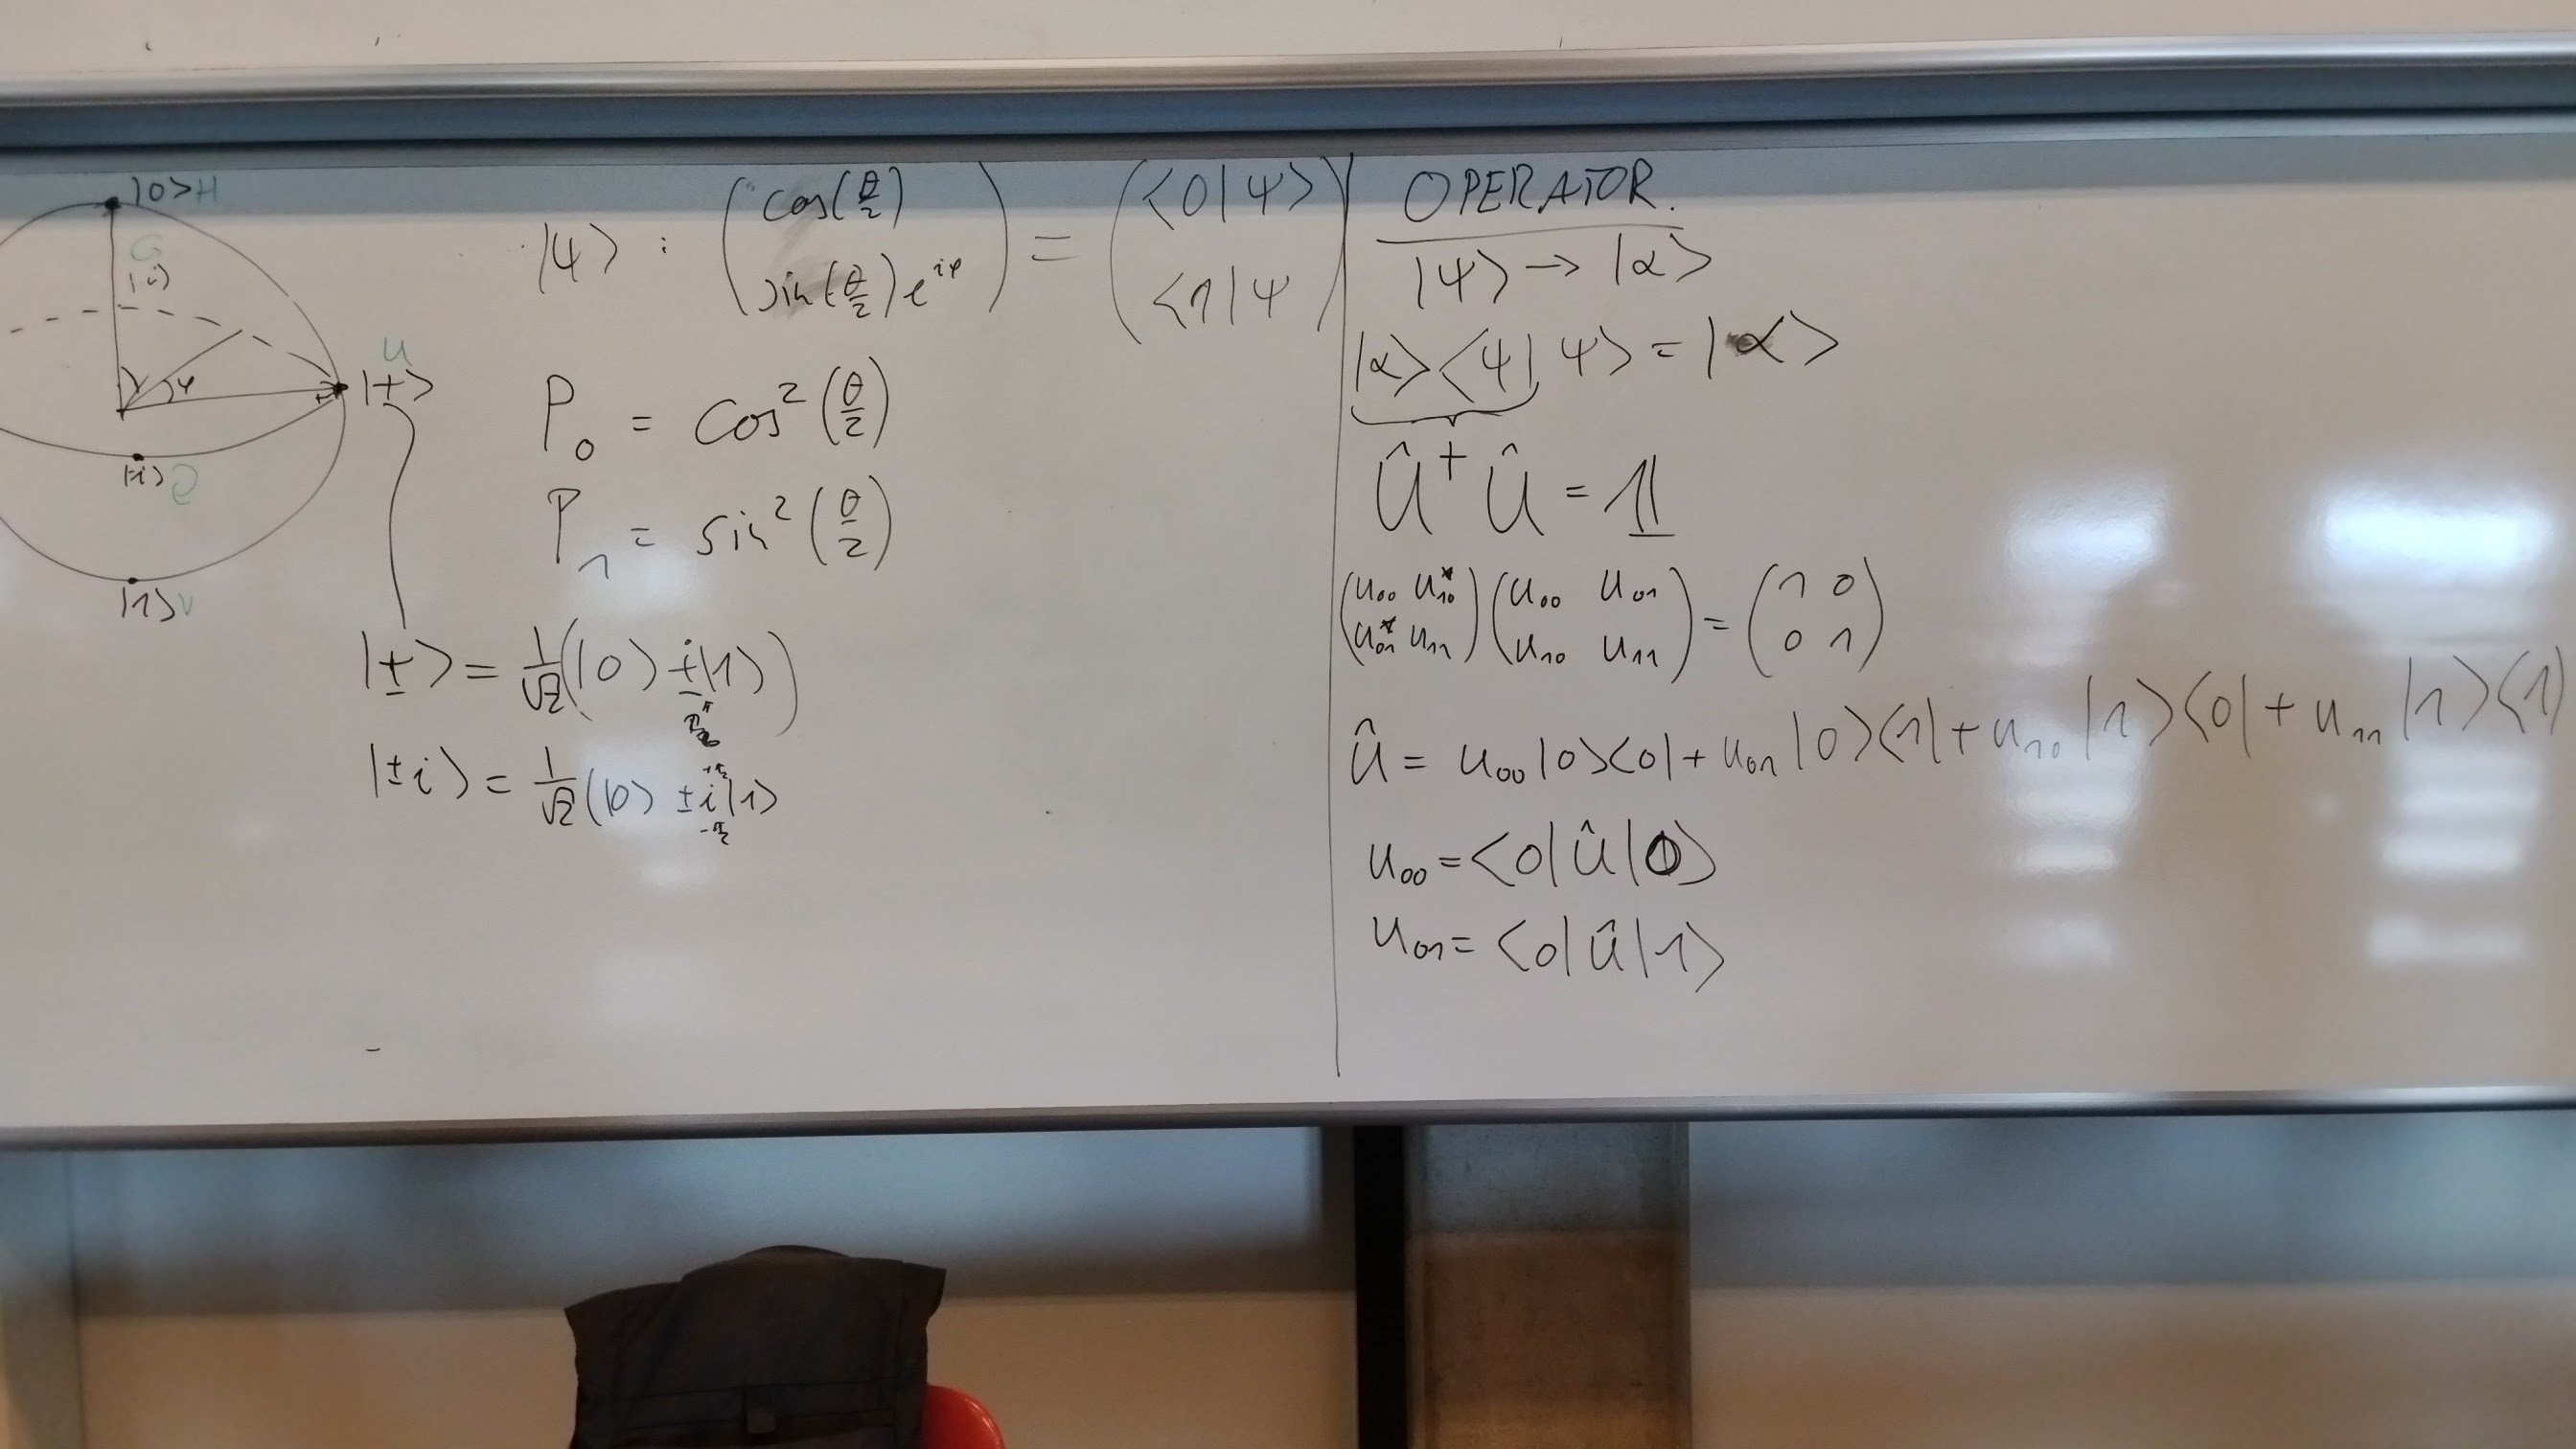 |0> H
G
|i>
φ
U
|+>
|-i>
|1> V
|ψ> : ( cos(θ/2) ) = ( <0|ψ> )
( sin(θ/2) e^iφ ) ( <1|ψ )
P₀ = cos² (θ/2)
P₁ = sin² (θ/2)
|±> = 1/√2 (|0> ± |1>)
π
|±i> = 1/√2 (|0> ± i|1>
+π/2
-π/2
OPERATOR.
|ψ> → |α>
|α><ψ| ψ> = |α>
Û⁺ Û = 𝟙
( u₀₀ u₁₀* ) ( u₀₀ u₀₁ ) = ( 1 0 )
( u₀₁* u₁₁ ) ( u₁₀ u₁₁ ) ( 0 1 )
Û = u₀₀ |0><0| + u₀₁ |0><1| + u₁₀ |1><0| + u₁₁ |1><1|
u₀₀ = <0| Û |0>
u₀₁ = <0| Û |1>